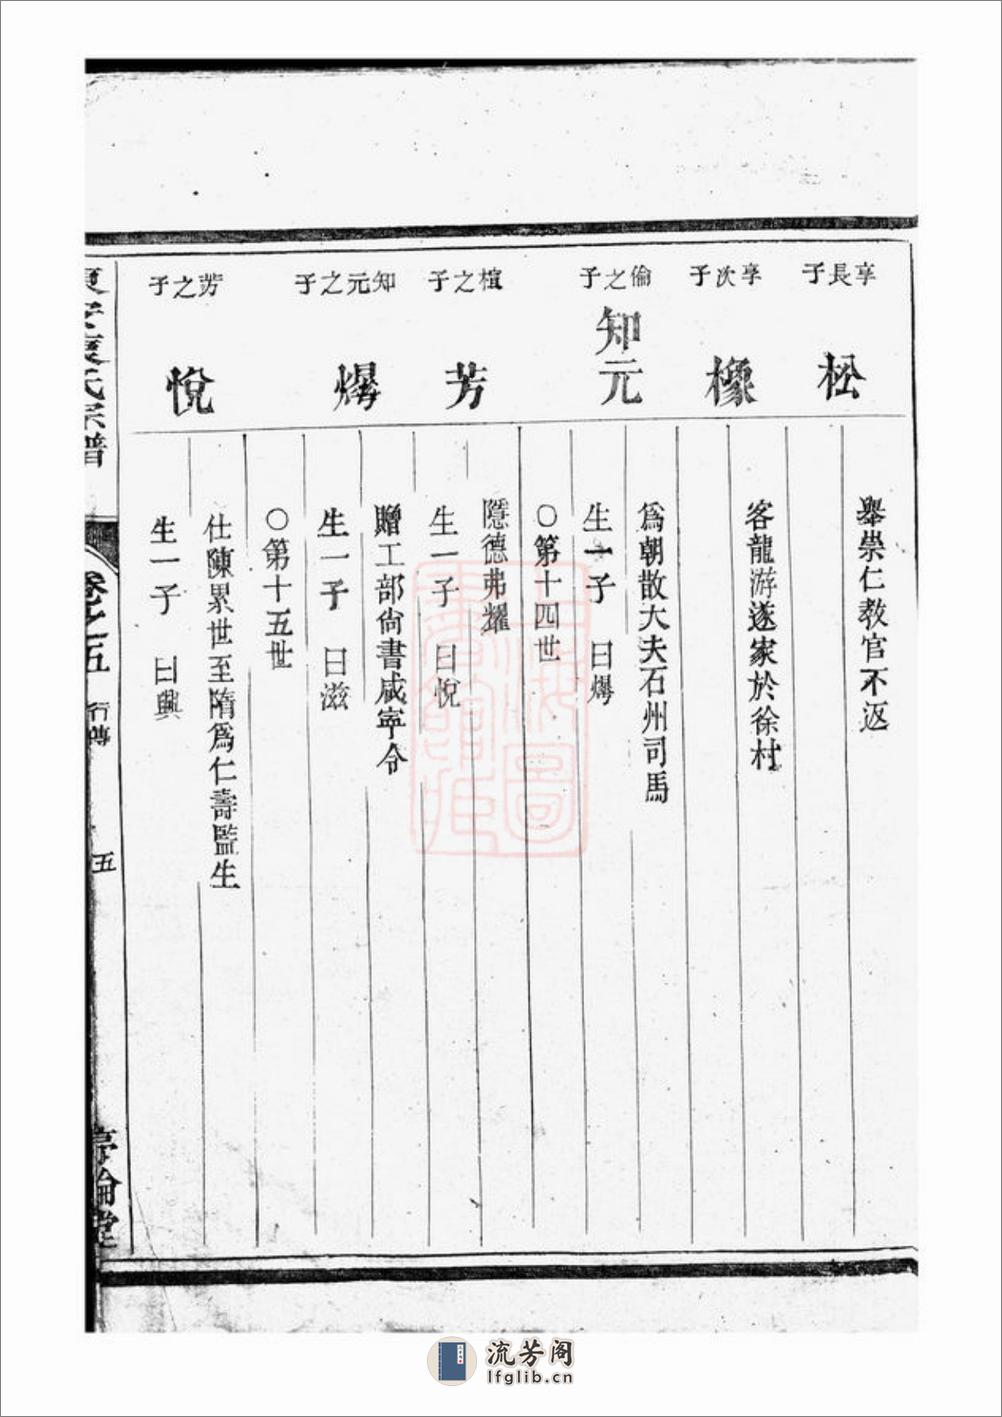 享長子
松
舉崇仁教官不返
享次子
橡
客龍游遂家於徐村
倫之子
知元
為朝散大夫石州司馬
生一子 曰爗
○第十四世
楦之子
芳
隱德弗耀
生一子 曰悅
知元之子
爗
贈工部尚書咸寧令
生一子 曰滋
○第十五世
芳之子
悅
仕陳累世至隋為仁壽監生
生一子 曰興
氏宗譜
卷之五 行傳
五
倫堂
流芳阁
lfglib.cn